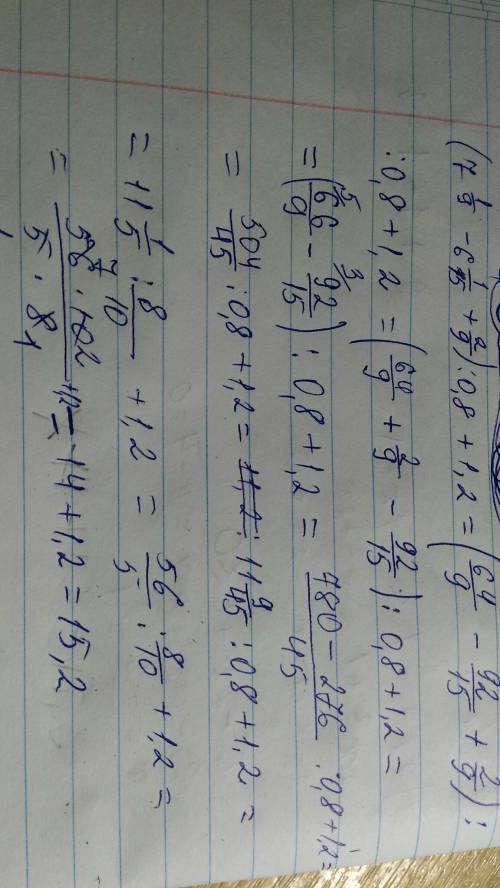 (7 1/9 - 6 1/15 + 2/9) : 0,8 + 1,2 = (64/9 - 92/15 + 2/9) :
: 0,8 + 1,2 = (64/9 + 2/9 - 92/15) : 0,8 + 1,2 =
= (66/9 - 92/15) : 0,8 + 1,2 = (480 - 276)/45 : 0,8 + 1,2 =
= 504/45 : 0,8 + 1,2 = 11 9/45 : 0,8 + 1,2 =
= 11 1/5 : 8/10 + 1,2 = 56/5 : 8/10 + 1,2 =
= (56 · 10)/(5 · 8) + 1,2 = 14 + 1,2 = 15,2